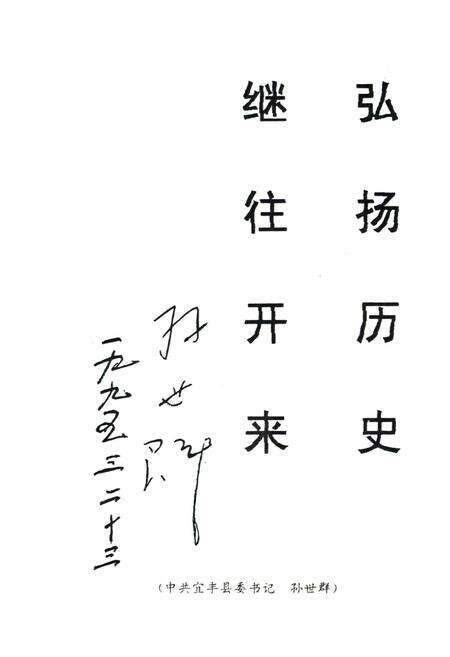 弘扬历史
继往开来
孙世群
一九九五三二十三
(中共宜丰县委书记 孙世群)